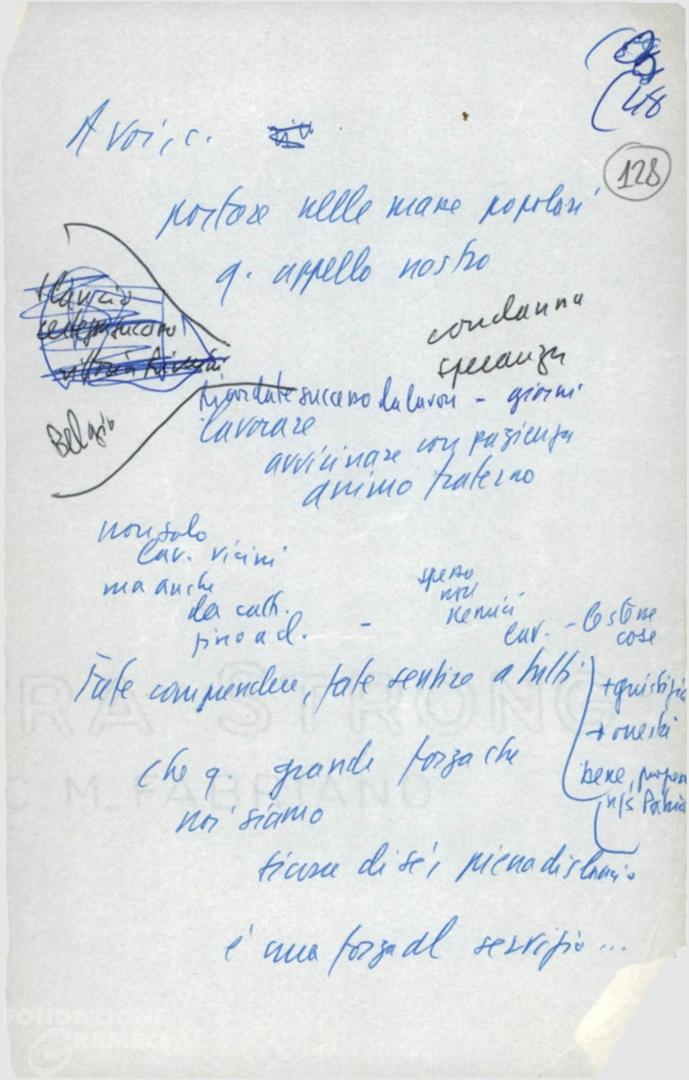 (48
128
A voi, c.
portare nelle masse popolari
q. appello nostro
condanna
speranza
Slancio
Ricordate successo da lavori - giorni
Belgio
lavorare
avvicinare con pazienza
animo fraterno
non solo
lav. vicini
ma anche
da catt.
fino a d. -
spesso
non
nemici
lav. - le stesse
cose
Fate comprendere, fate sentire a tutti
+ giustizia
+ onestà
bene,
n/s Patria
che q. grande forza che
noi siamo
sicura di sé, piena di slancio
è una forza al servizio...
RA STRONG
C. M. FABRIANO
FONDAZIONE
GRAMSCI